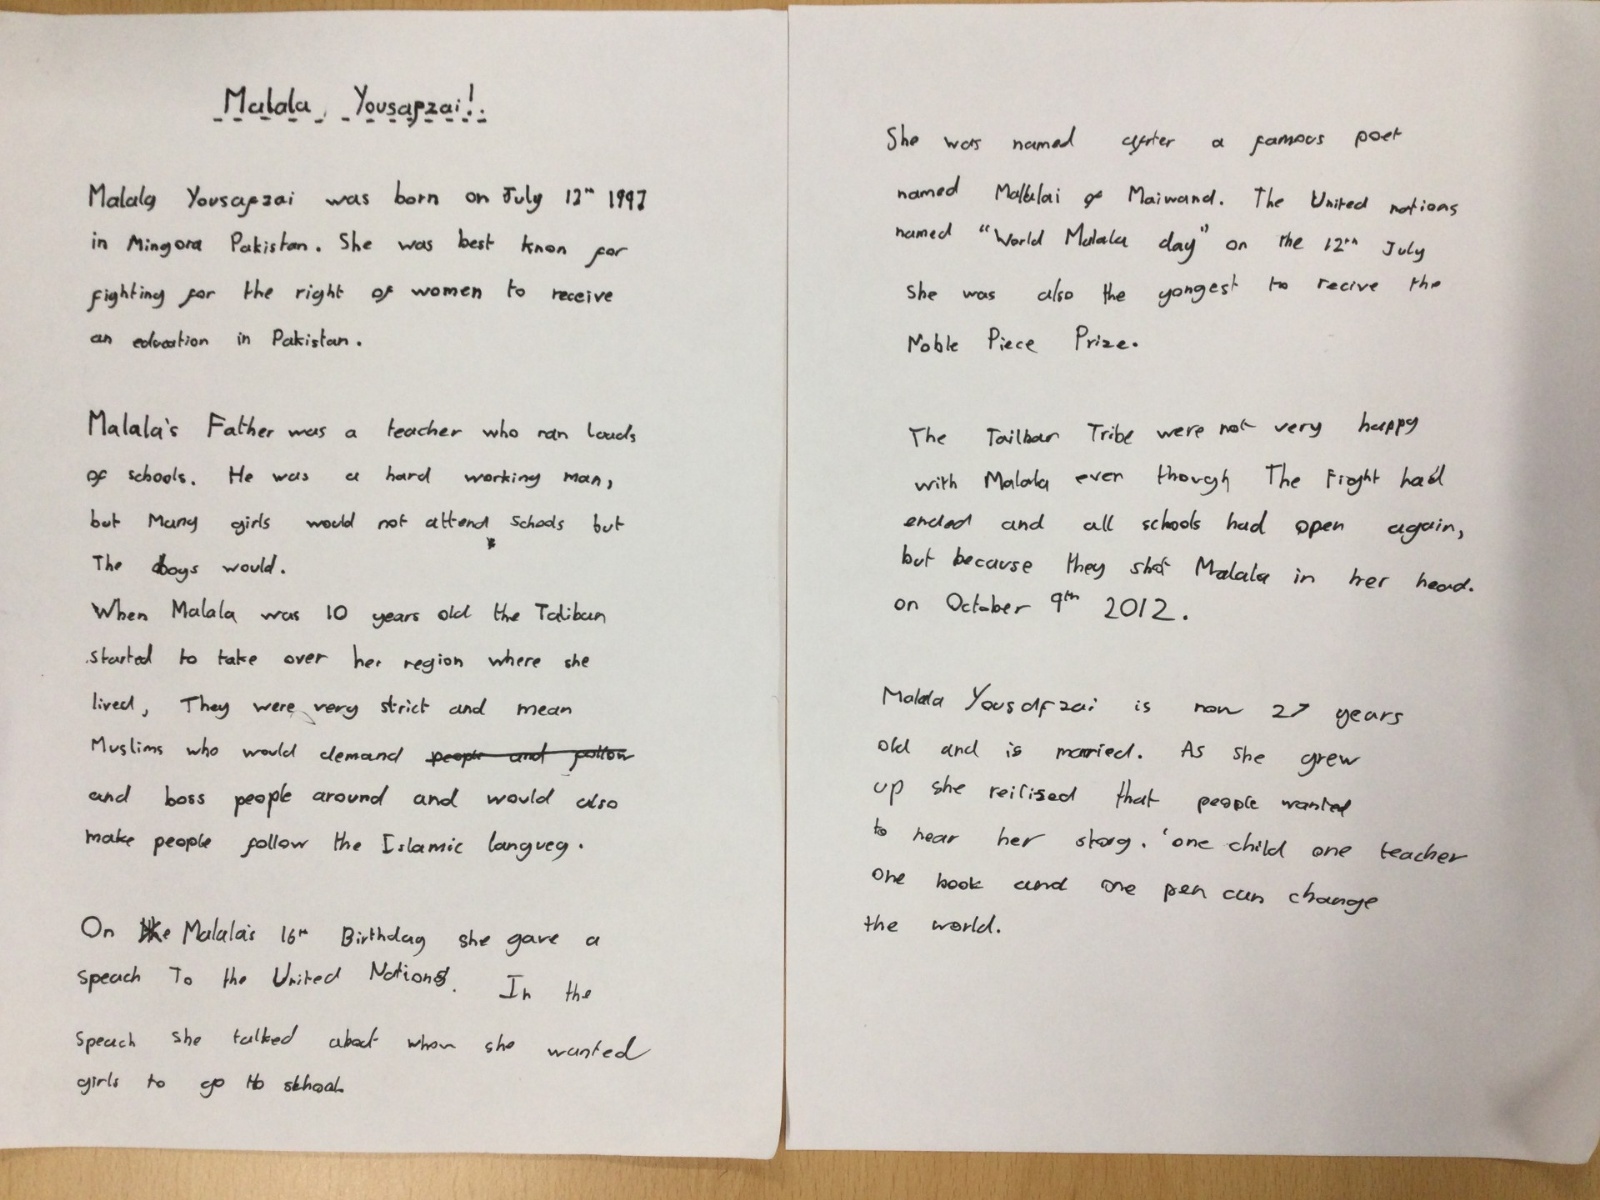 Malala Yousafzai!
Malala Yousafzai was born on July 12th 1997
in Mingora Pakistan. She was best knon for
fighting for the right of women to receive
an education in Pakistan.
Malala's Father was a teacher who ran louds
of schools. He was a hard working man,
but Many girls would not attend schools but
The boys would.
When Malala was 10 years old the Taliban
started to take over her region where she
lived, They were very strict and mean
Muslims who would demand people and follow
and boss people around and would also
make people follow the Islamic langueg.
On Malala's 16th Birthday she gave a
speach To the United Nations. In the
speach she talked about whon she wanted
girls to go to school
She was named after a famous poet
named Malalai of Maiwand. The United nations
named "World Malala day" on the 12th July
She was also the yongest to recive the
Noble Piece Prize.
The Tailban Tribe were not very happy
with Malala even though The Fight had
ended and all schools had open again,
but because they shot Malala in her head.
on October 9th 2012.
Malala Yousafzai is now 27 years
old and is married. As she grew
up she reilised that people wanted
to hear her story. 'one child one teacher
one book and one pen can change
the world.